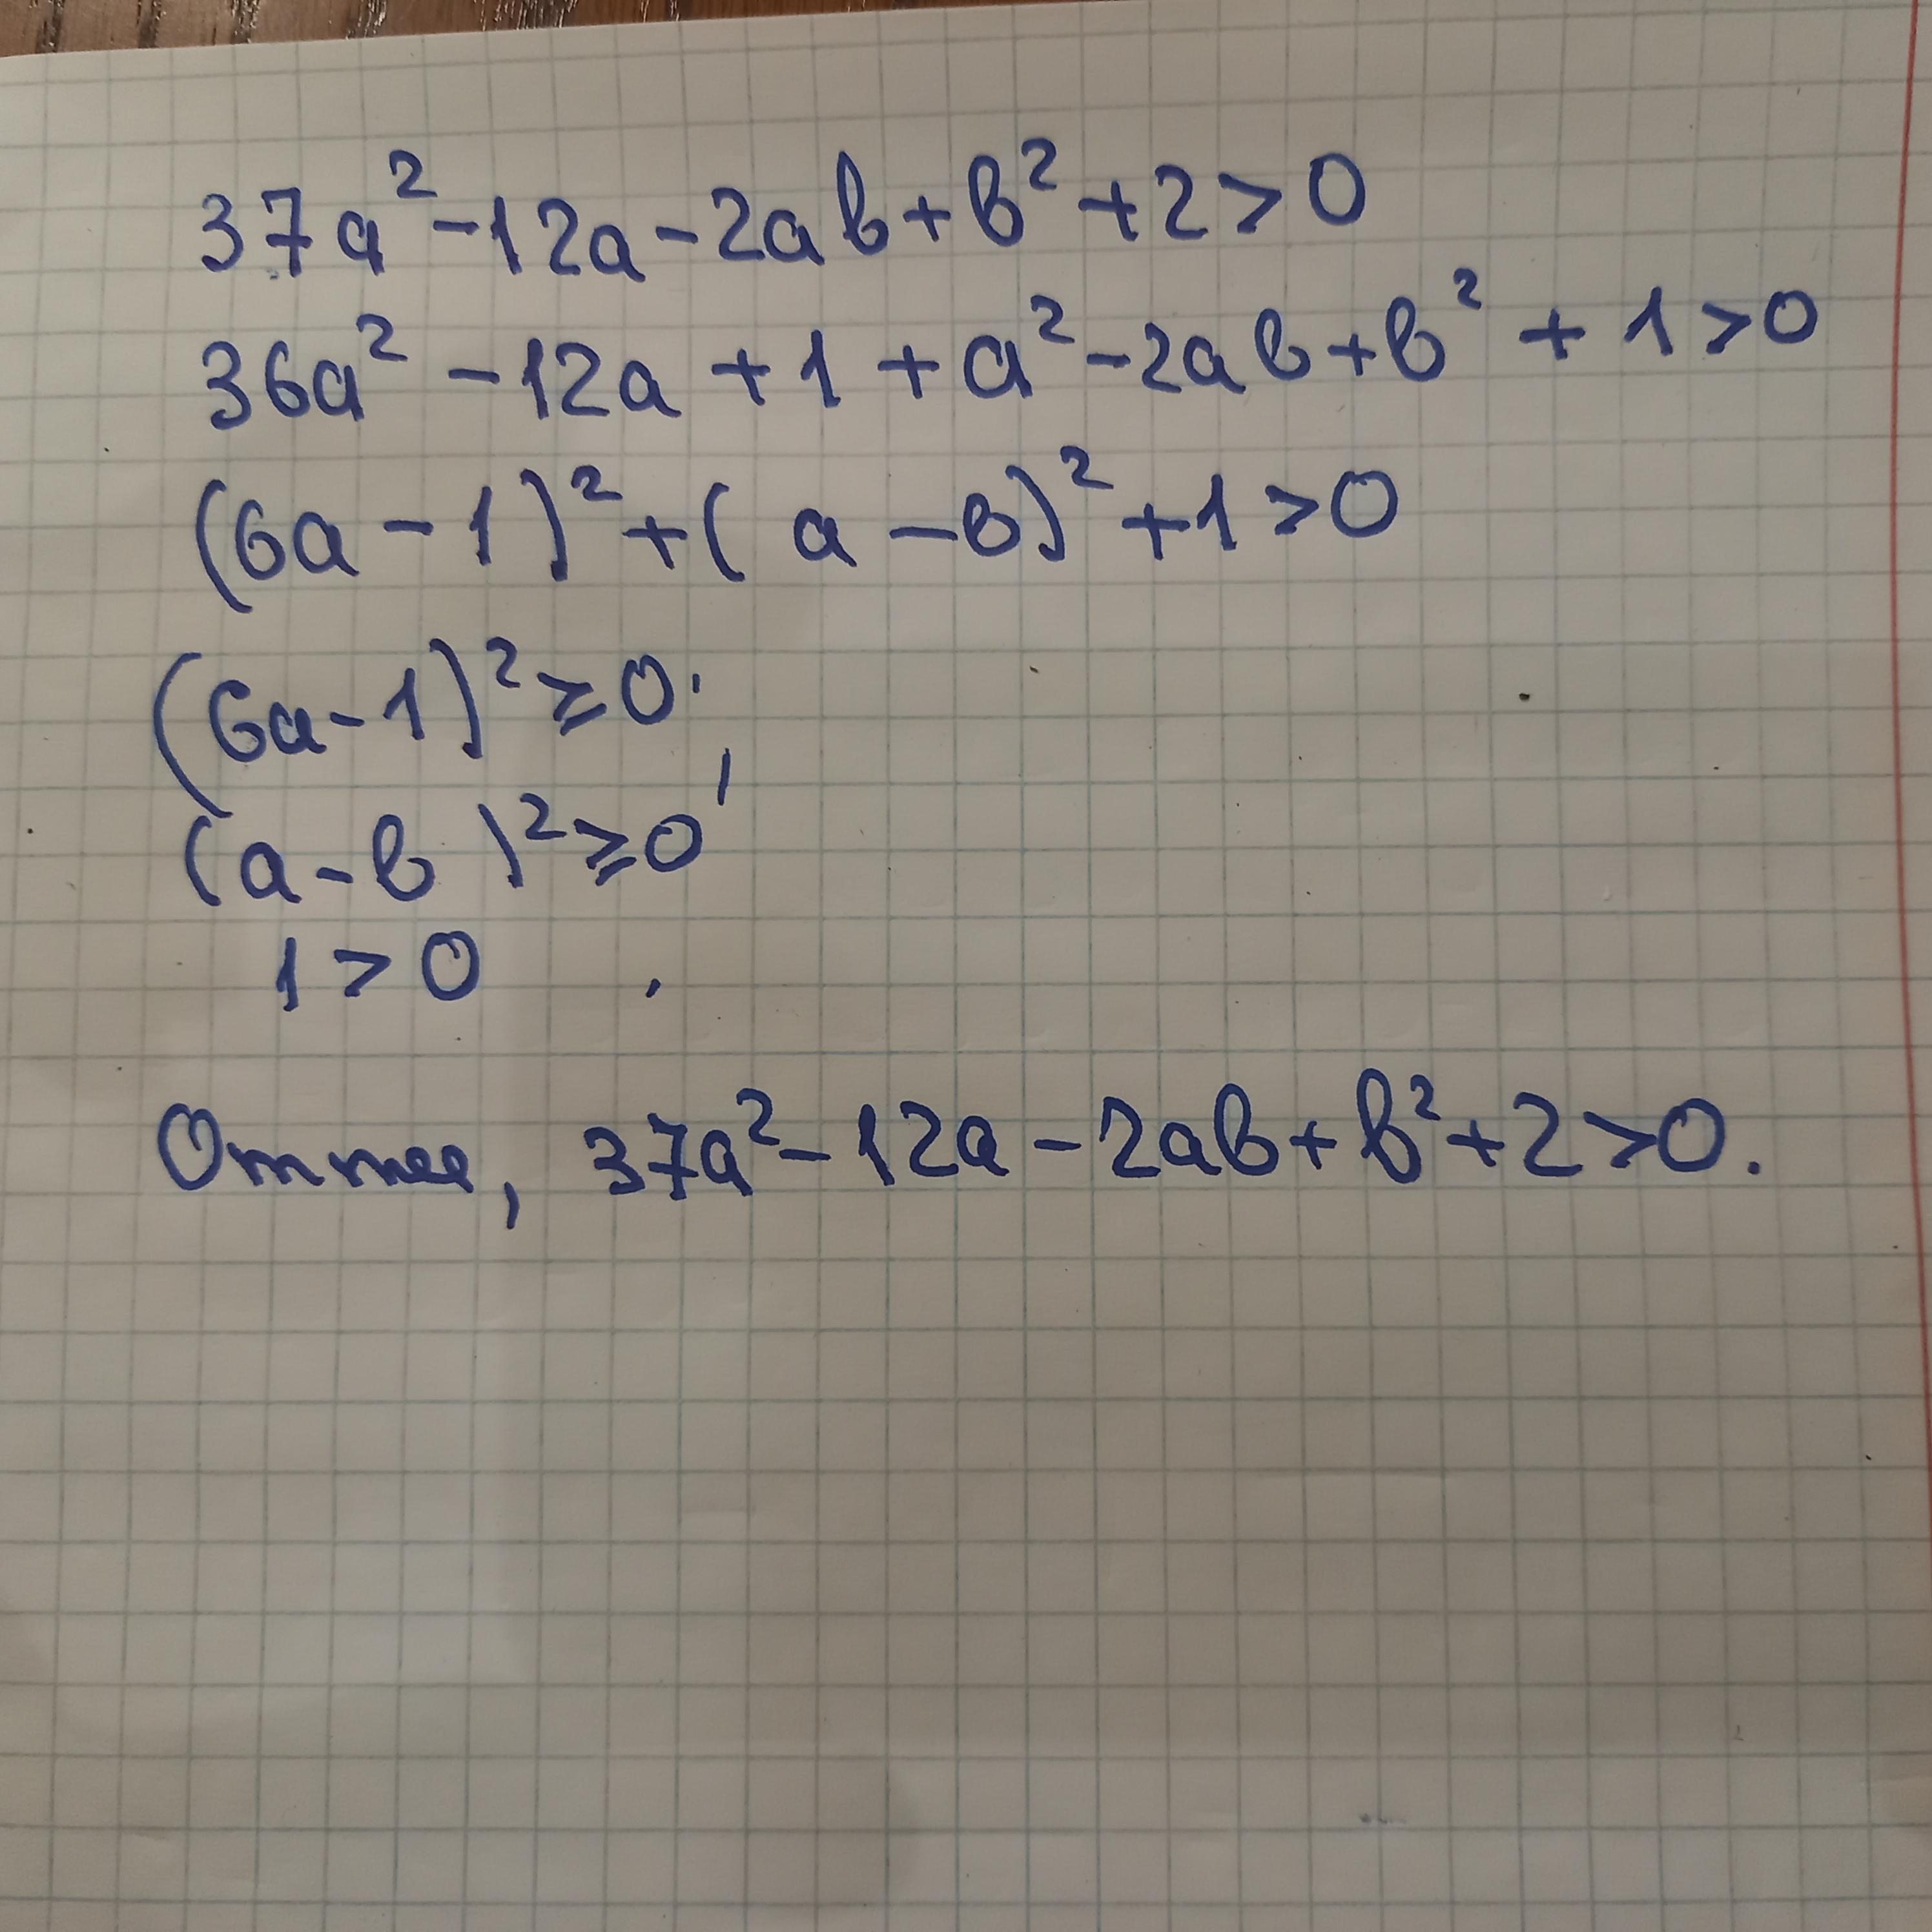 37a² - 12a - 2ab + b² + 2 > 0
36a² - 12a + 1 + a² - 2ab + b² + 1 > 0
(6a - 1)² + (a - b)² + 1 > 0
(6a - 1)² ≥ 0;
(a - b)² ≥ 0,
1 > 0 .
Отже, 37a² - 12a - 2ab + b² + 2 > 0.